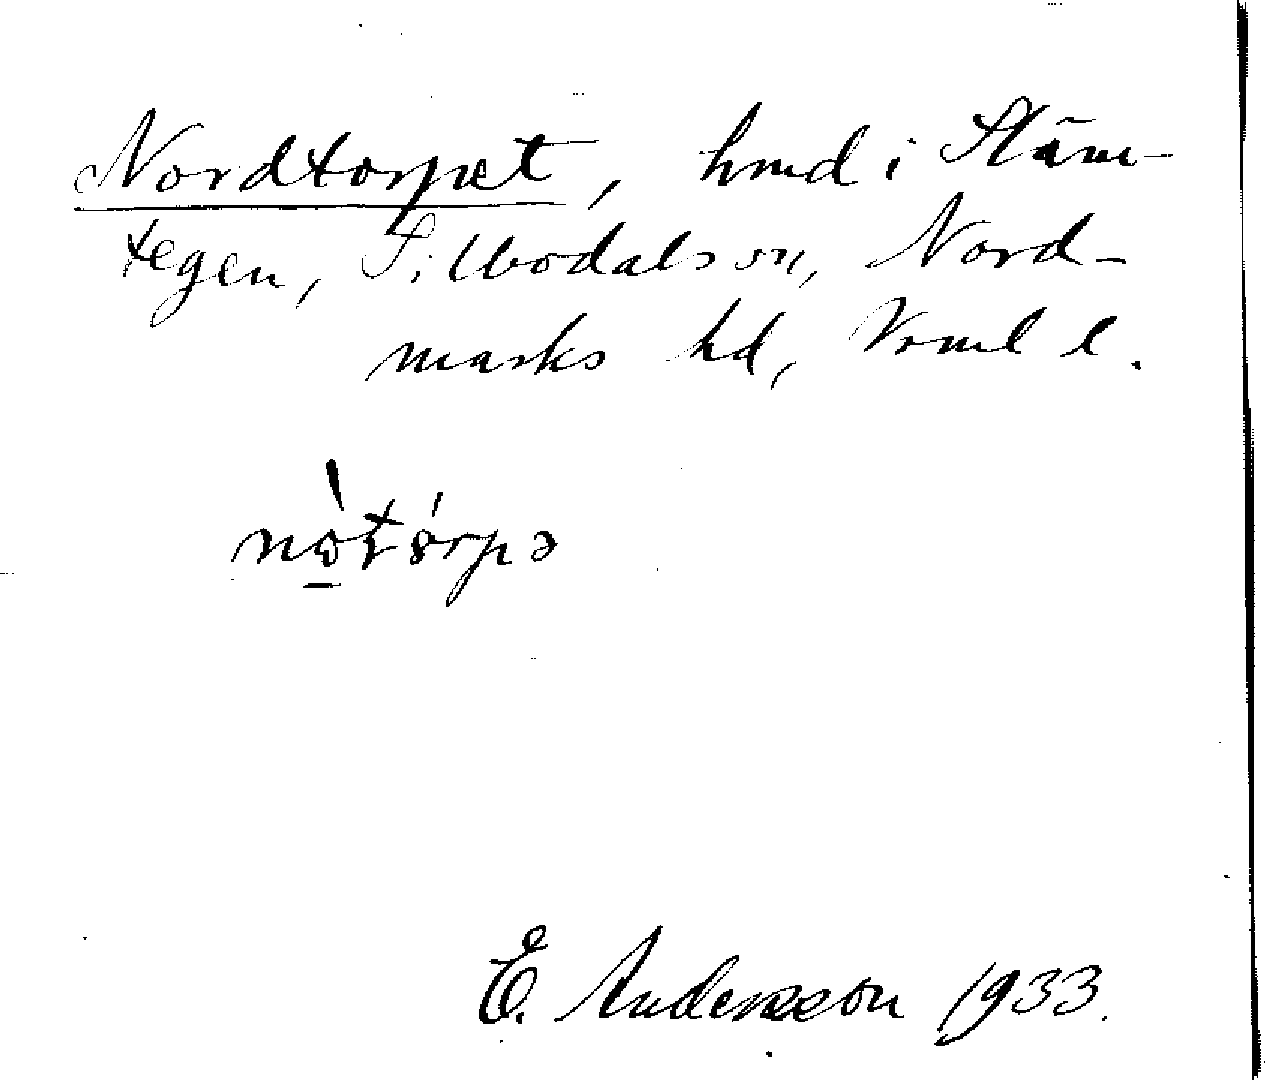 Nordtorpet, hmd i Stäm-
tegen, Sillbodals sn, Nord-
marks hd, Vrml l.
E. Andersson 1933.